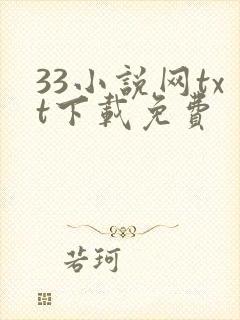 33小説网tx
t下載免費
若珂